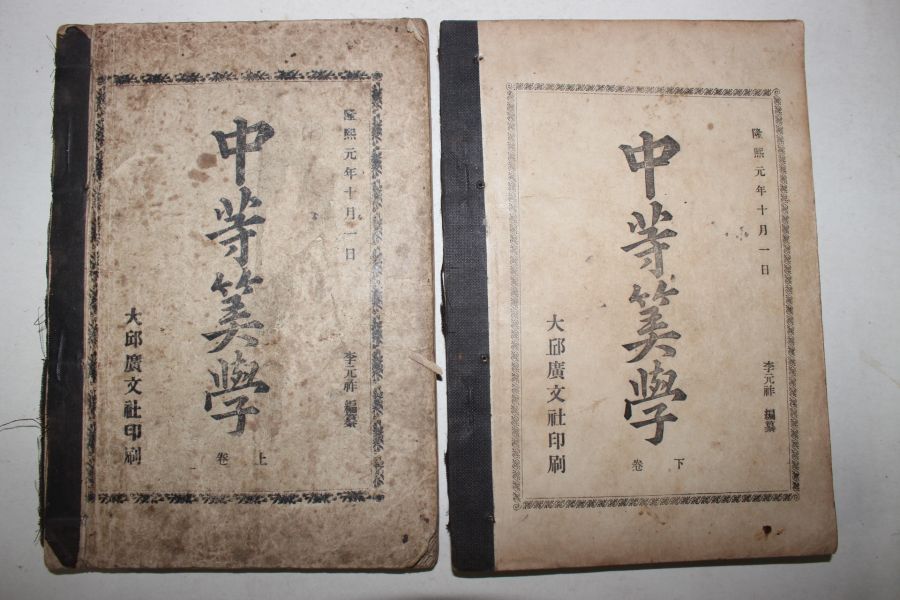 隆熙元年十月一日
李元祚 編纂
中等筭學
上卷
大邱廣文社印刷
隆熙元年十月一日
李元祚 編纂
中等筭學
下卷
大邱廣文社印刷